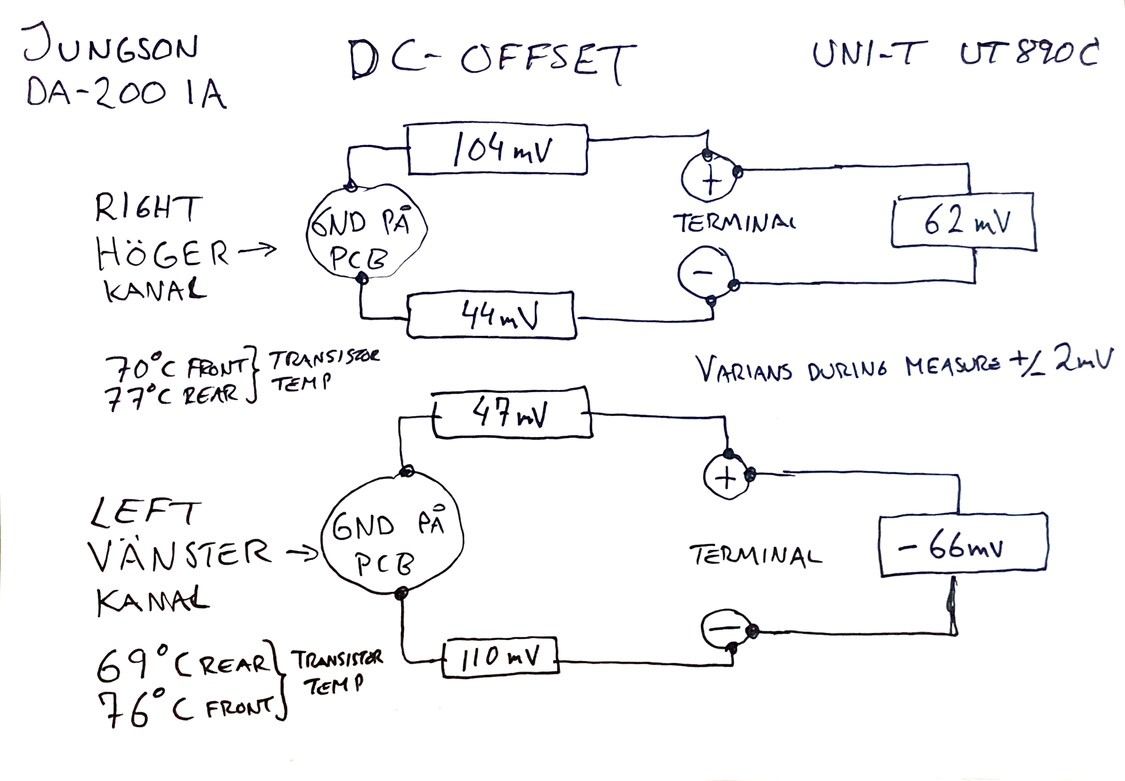 JUNGSON
DA-200 1A
DC-OFFSET
UNI-T UT890C
RIGHT
HÖGER →
KANAL
GND PÅ
PCB
104mV
44mV
+
TERMINAL
-
62mV
70°C FRONT
77°C REAR
TRANSISTOR
TEMP
VARIANS DURING MEASURE +/- 2mV
LEFT
VÄNSTER →
KANAL
GND PÅ
PCB
47mV
110mV
+
TERMINAL
-
-66mV
69°C REAR
76°C FRONT
TRANSISTOR
TEMP